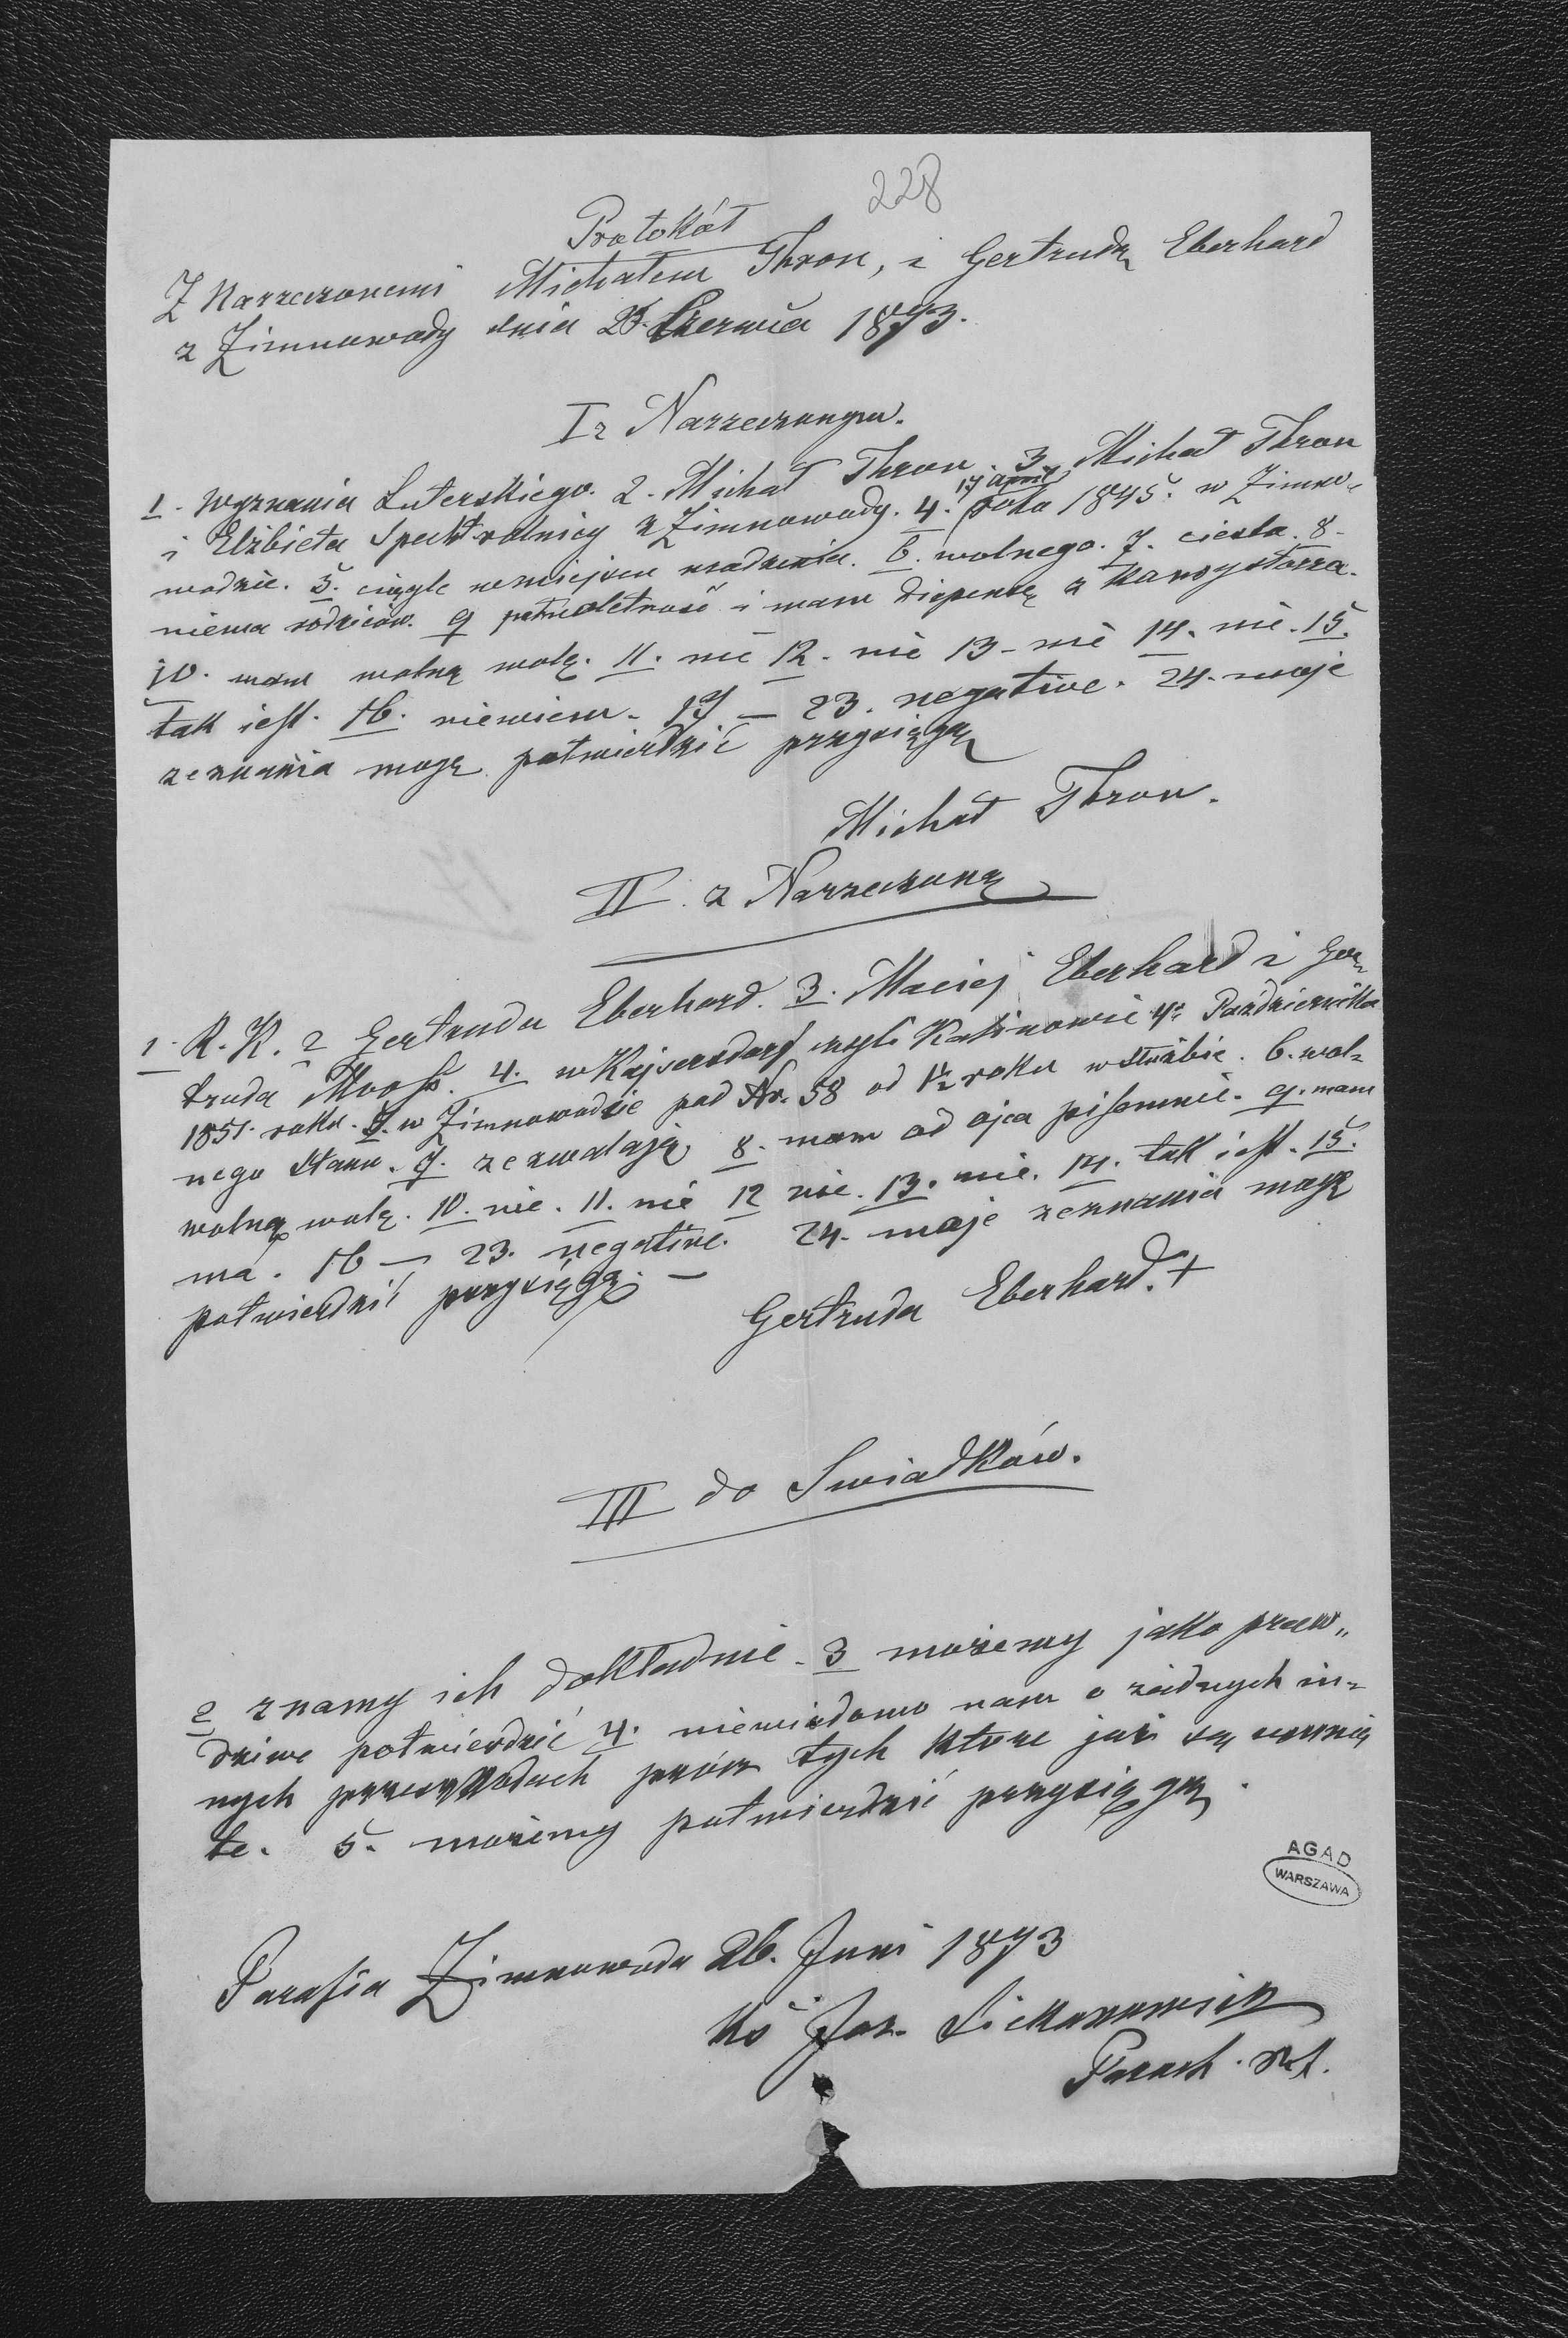 228
Protokół
Z Narzeczonemi Michałem Thron, i Gertrudą Eberhard
z Zimnowody dnia 25. Czerwca 1873.
I z Narzeczonym.
1. Wyznania Luterskiego. 2. Michał Thron. 3. Michał Thron
i Elżbieta Specht rolnicy z Zimnowody. 4. 17 April roku 1845. w Zimno-
wodzie. 5. ciągle w miejscu urodzenia. 6. wolnego. 7. cieśla. 8.
niema rodziców. 9 pełnoletność i mam dispensę z Konsystorza.
10. mam wolną wolę. 11. nie 12. nie 13. nie 14. nie. 15.
tak jest. 16. niewiem. 17 — 23. negative. 24. moje
zeznania mogę potwierdzić przysięgą
Michał Thron.
II. z Narzeczoną
1. R. K. 2 Gertruda Eberhard. 3. Maciej Eberhard i Ger-
truda Mooss. 4. w Kajsersdorf czyli Kalinowie 4. Października
1851. roku. 5. w Zimnowodzie pod Nr. 58 od 1½ roku w służbie. 6. wol-
nego stanu. 7. zezwalają 8. mam od ojca pisemnie. 9. mam
wolną wolę. 10. nie. 11. nie 12 nie. 13. nie. 14. tak jest. 15.
ma. 16 — 23. negative. 24. moje zeznania mogę
potwierdzić przysięgą. —
Gertruda Eberhard. +
III do Swiadków.
2 znamy ich dokładnie. 3 możemy jako praw„
dziwe potwierdzić 4. niewiadomo nam o żadnych in-
nych przeszkodach prócz tych które już są
te. 5. możemy potwierdzić przysięgą.
AGAD
WARSZAWA
Parafia Zimnowoda 26. Juni 1873
Ks Jos.
Paroch.